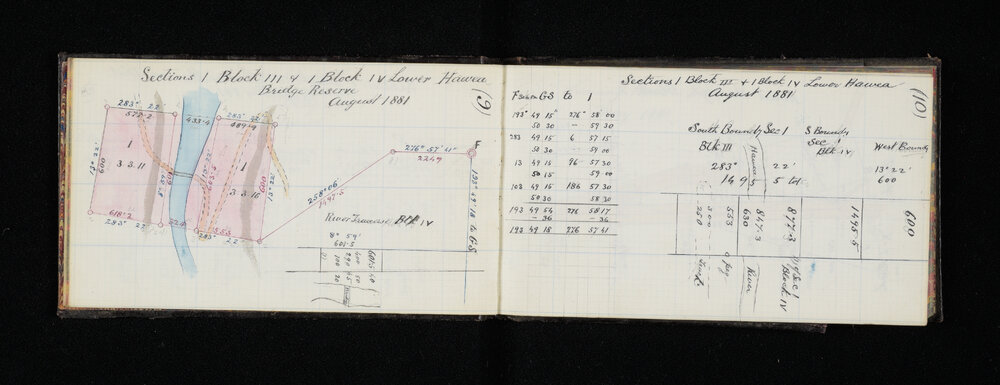 Sections 1 Block III & 1 Block IV Lower Hawea
Bridge Reserve
August 1881
(9)
283° 22'
572.2
433.4
283° 22'
489.9
1
3 3 11
13° 22'
600
8° 59'
600
1
3 3 16
600
13° 22'
618.2
283° 22'
324
553
283° 22
258° 06'
1497.5
276° 57' 41"
2249
193° 49' 18 to GS
River Traverse Blk IV
8° 59'
601.5
601.5 40
400 50
290 65
100 20
(10)
Sections 1 Block III & 1 Block IV Lower Hawea
August 1881
From GS to 1
193° 49 15 276° 58 00
50 30 — 59 30
283 49 15 6 57 15
50 30 — 59 00
13 49 15 96 57 30
50 15 59 00
103 49 15 186 57 30
50 30 58 30
193 49 54 276 58 17
- 36 - 36
193 49 18 276 57 41
South Boundy Sec 1
Blk III
283° 22'
1495.5 tot
Hawea
S Boundy
Sec 1
Blk IV
West Boundy
13° 22'
600
250
300
553
630
847.3
877.3
1495.5
600
Track
o peg
River
W of Sec 1
Block IV